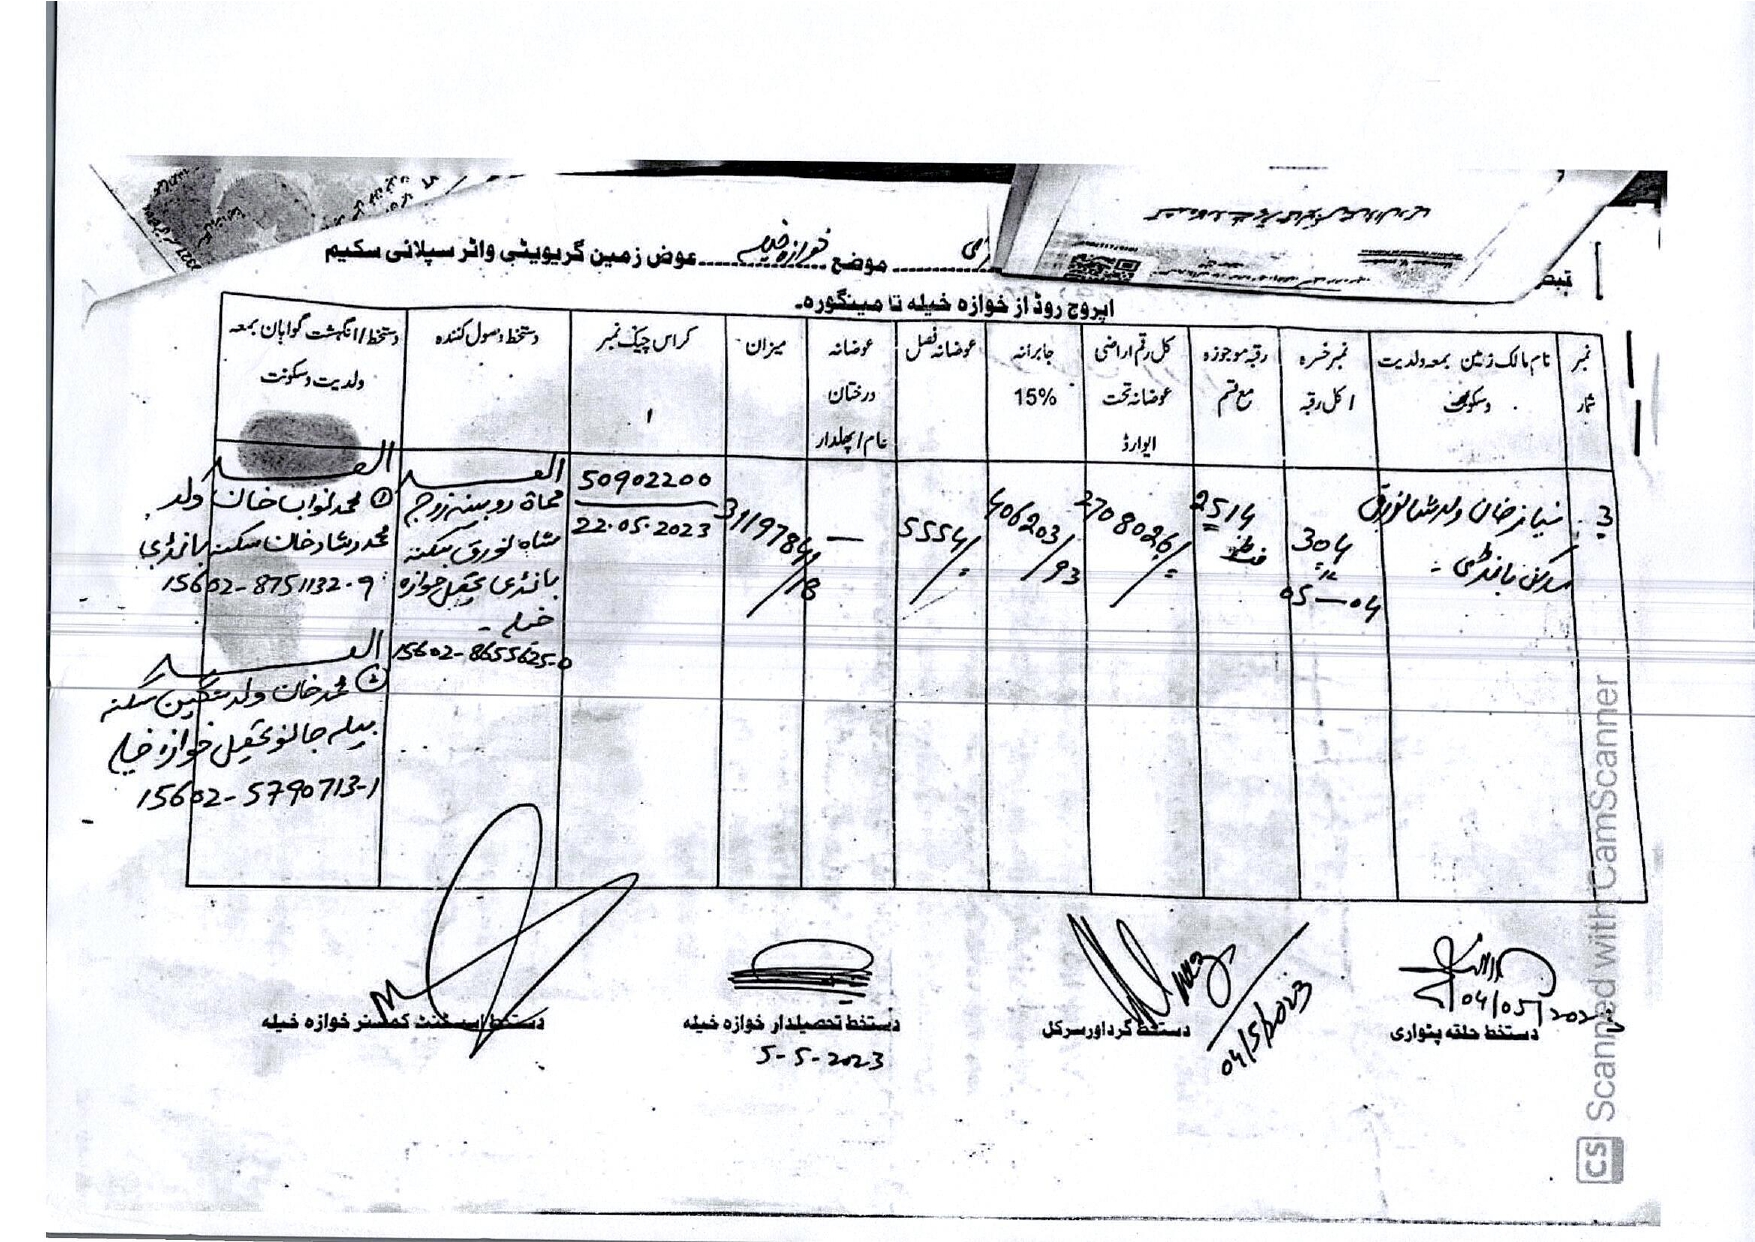 موضع خوازہ خیلہ عوض زمین گریویٹی واٹر سپلائی سکیم
اپروچ روڈ از خوازہ خیلہ تا مینگورہ۔
نمبر شمار
نام مالک زمین بمعہ ولدیت وسکونت
نمبر خسرہ / کل رقبہ
رقبہ موجوزہ مع قسم
کل رقم اراضی عوضانہ تحت ایوارڈ
جابرانہ 15%
عوضانہ فصل
عوضانہ درختان عام / پھلدار
میزان
کراس چیک نمبر
دستخط وصول کنندہ
دستخط / انگہشت گواہان بمعہ ولدیت وسکونت
3
نیاز خان ولد شالورق
ساکن بانڈی ۔
304
05-04
2514
فٹ
2708026/=
406203/93
5554/=
—
3119784/18
50902200
22.05.2023
العبد
مسماۃ روبینہ زوج
شاہ لورق سکنہ
بانڈی تحصیل خوازہ
خیلہ ۔
15602-8655625-0
العبد
① محمد نواب خان ولد
محمد رشاد خان سکنہ بانڈی
15602-8751132-9
العبد
② محمد خان ولد سکین سکنہ
بیلہ جالو تحصیل خوازہ خیلہ
15602-5790713-1
04/05/202
دستخط حلقہ پٹواری
دستخط گرداور سرکل
04/5/2023
دستخط تحصیلدار خوازہ خیلہ
5-5-2023
دستخط اسسٹنٹ کمشنر خوازہ خیلہ
CS Scanned with CamScanner